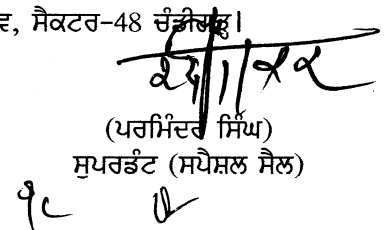 ਵ, ਸੈਕਟਰ-48 ਚੰਡੀਗੜ੍ਹ।
(ਪਰਮਿੰਦਰ ਸਿੰਘ)
ਸੁਪਰਡੰਟ (ਸਪੈਸ਼ਲ ਸੈਲ)